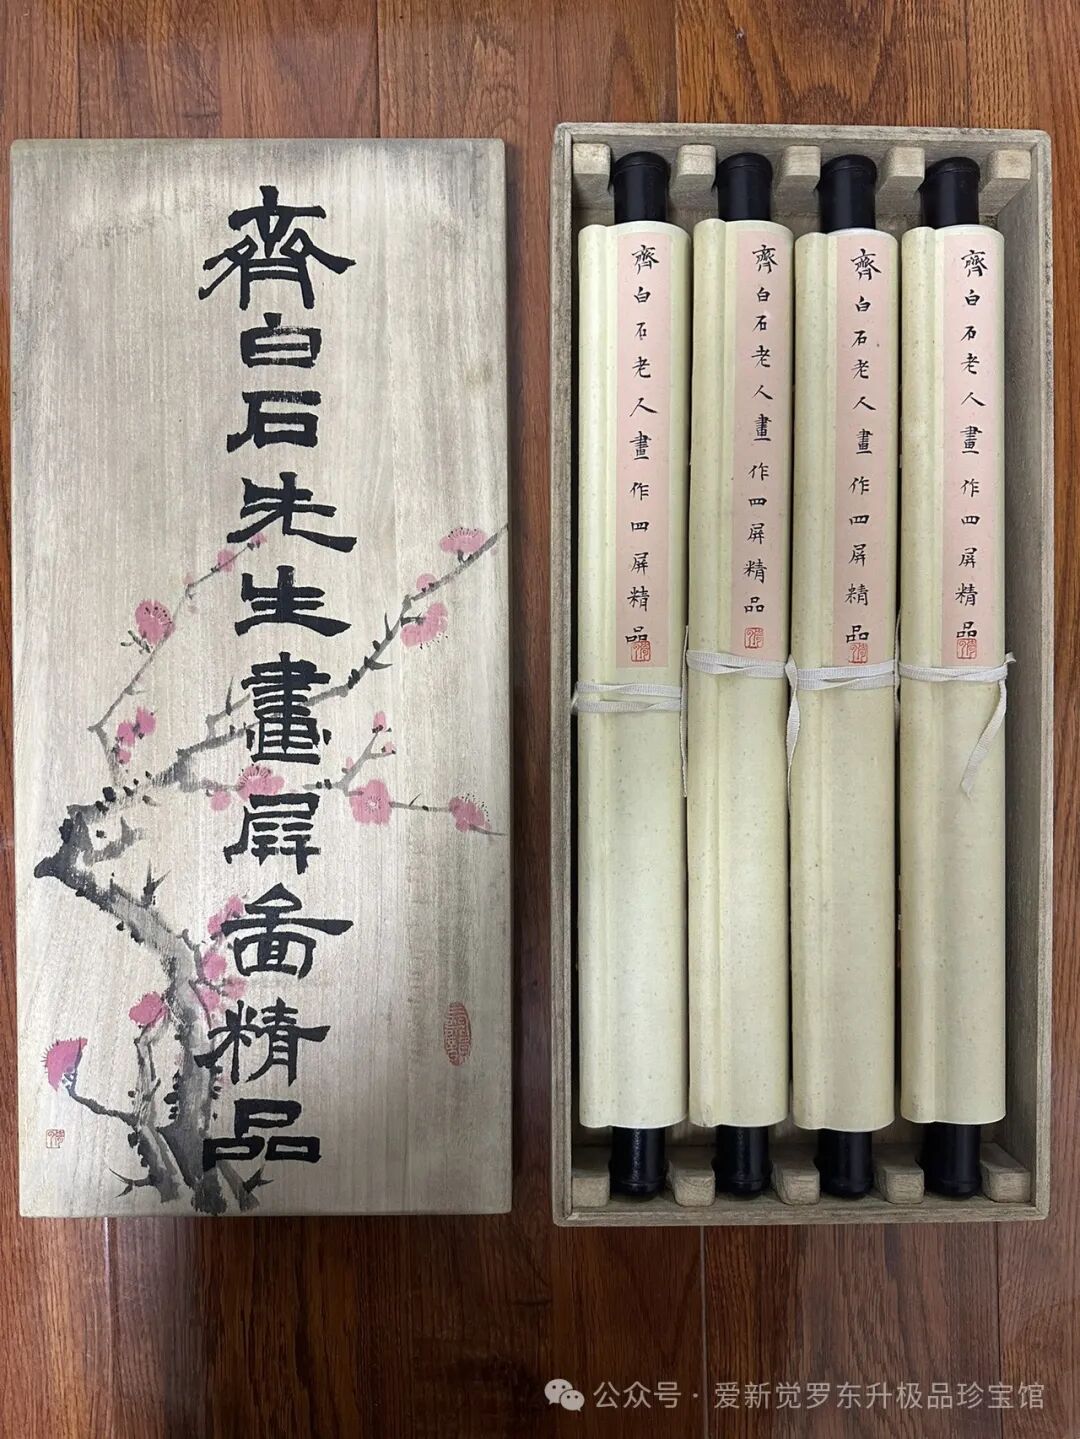 齊白石先生畫屏畵精品
齊白石老人畫作四屏精品
齊白石老人畫作四屏精品
齊白石老人畫作四屏精品
齊白石老人畫作四屏精品
公众号·爱新觉罗东升极品珍宝馆